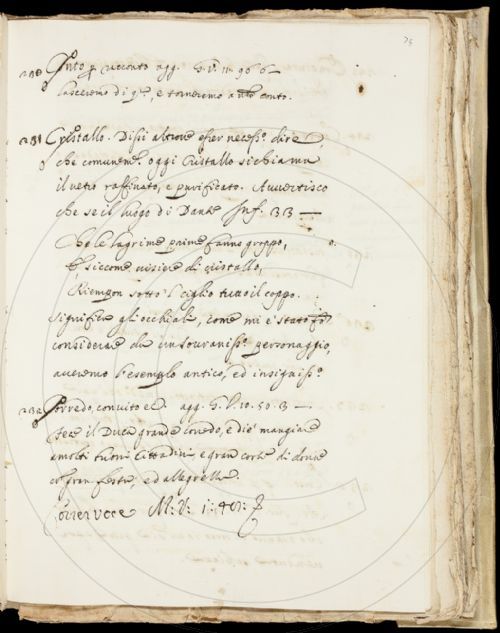 75
230 Conto p. racconto agg. G. V. 11. 96. 6 —
lasceremo di qto, e torneremo a nro conto.
231 Cristallo. Dissi altrove esser necess.o dire,
che comunemte oggi Cristallo si chiama
il vetro raffinato, e purificato. Avvertisco
che se il luogo di Dante Inf. 33 —
Chè le lagrime prime fanno groppo,
E, siccome visiere di cristallo,
Riempion sotto 'l ciglio tutto il coppo.
Significa gli occhiali, come mi è stato
considerare da un sovraniss.o personaggio,
averemo l'esempio antico, ed insigniss.o
232 Corredo, convito ec. agg. G. V. 10. 50. 3 —
fece il Duca grande corredo, e diè mangiare
a molti buoni Cittadini e gran corte di donne
con gran festa, ed allegrezza.
Correr voce M: V: 1: 401: